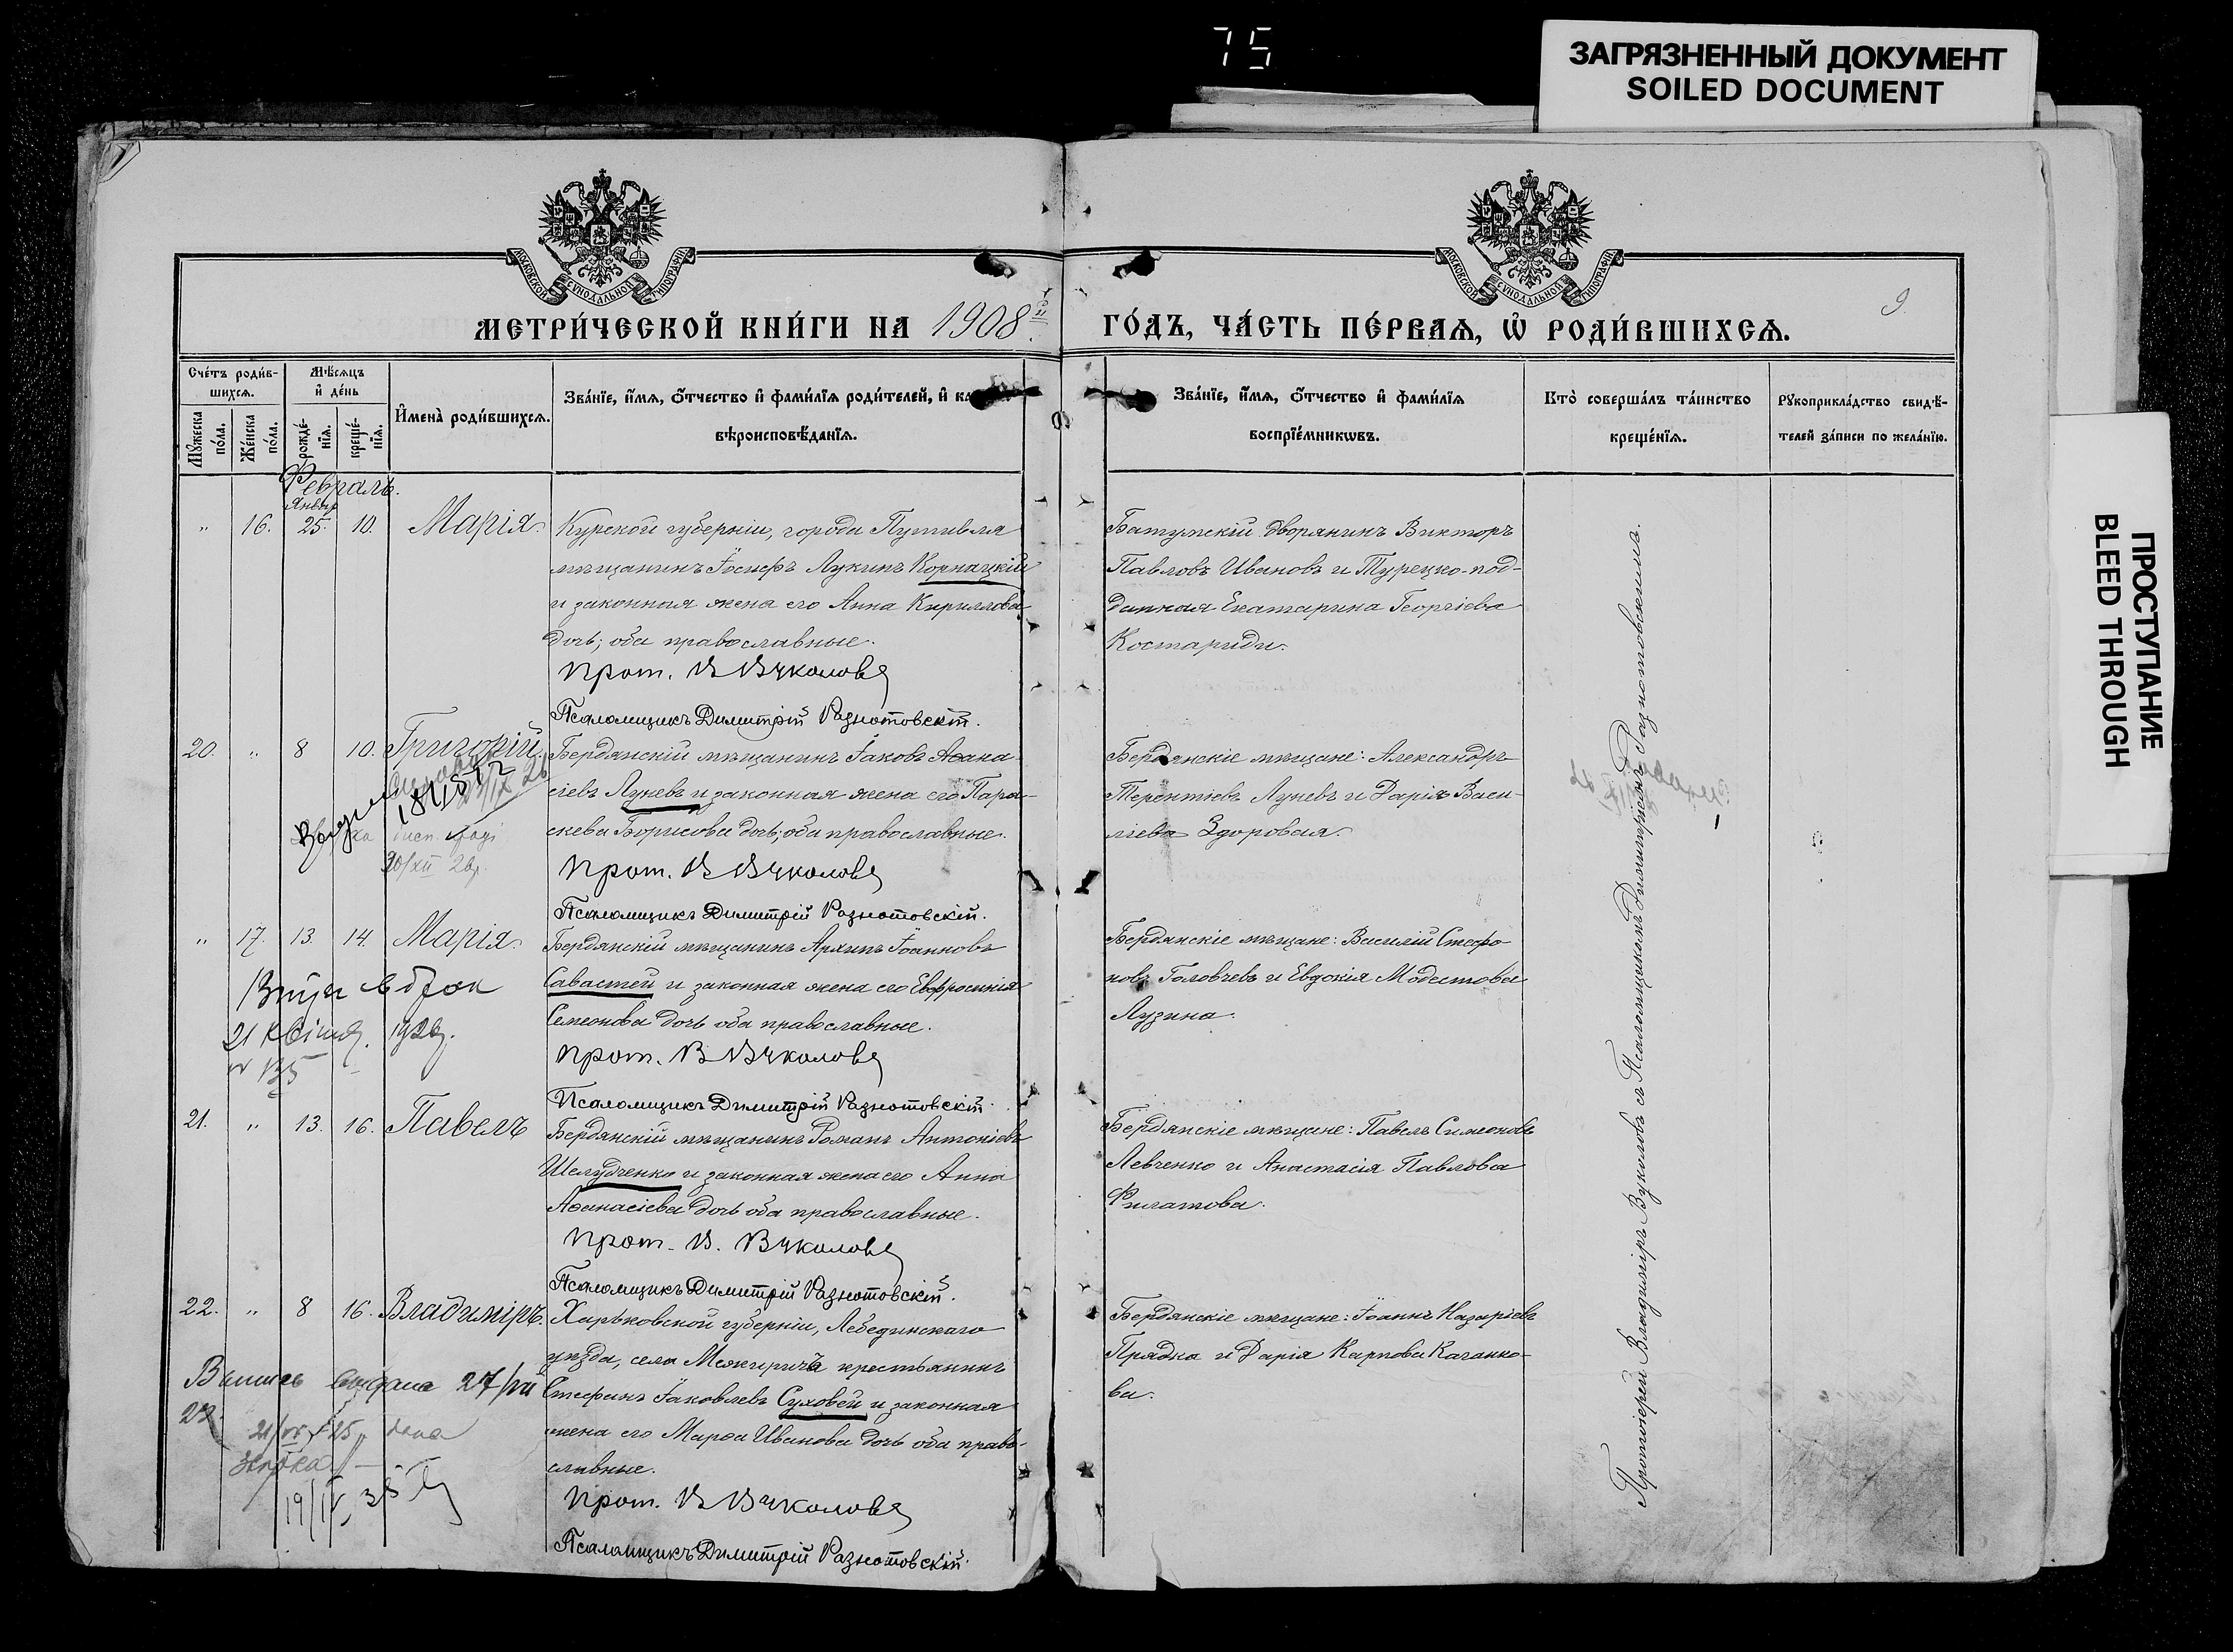 75
ЗАГРЯЗНЕННЫЙ ДОКУМЕНТ
SOILED DOCUMENT
ПРОСТУПАНИЕ
BLEED THROUGH
МОСКОВСКОЙ СѴНОДАЛЬНОЙ ТИПОГРАФІИ
МОСКОВСКОЙ СѴНОДАЛЬНОЙ ТИПОГРАФІИ
МЕТРИ́ЧЕСКОЙ КНИ́ГИ НА 1908й
ГО́ДЪ, ЧА́СТЬ ПЕ́РВАѦ, Ѡ҆ РОДИ́ВШИХСѦ.
9
Сче́тъ роди́в-
шихсѧ.
Мѣ́сѧцъ
и҆ де́нь
Мꙋ́жеска по́ла.
Же́нска по́ла.
рожде́-
нїѧ.
креще́-
нїѧ.
И҆мена̀ роди́вшихсѧ.
Зва́нїе, и҆́мѧ, ѻ҆́тчество и҆ фами́лїѧ роди́телей, и҆
вѣроисповѣ́данїѧ.
Зва́нїе, и҆́мѧ, ѻ҆́тчество и҆ фами́лїѧ
воспрїе́мникѡвъ.
Кто̀ соверша́лъ та́инство
креще́нїѧ.
Рꙋкоприкла́дство свидѣ́-
телей за́писи по жела́нїю.
Февраль.
Январ
" 16. 25. 10. Марія.
Курской губерніи, города Путивля
мѣщанинъ Іосифъ Лукинъ Корнацкій
и законная жена его Анна Кириллова
дочь; оба православные.
Прот. В Вуколовъ
Псаломщикъ Димитрій Разнотовскій.
Батумскій дворянинъ Викторъ
Павловъ Ивановъ и Турецко-под-
данная Екатарина Георгіева
Костариди.
20. " 8 10. Григорій.
Бердянскій мѣщанинъ Іаковъ Аѳана
сіевъ Луневъ и законная жена его Пара-
скева Борисова дочь; оба православные.
Прот. В Вуколовъ
Псаломщикъ Димитрій Разнотовскій.
Бердянскіе мѣщане: Александръ
Терентіевъ Луневъ и Дарія Васи-
ліева Здоровая.
" 17. 13. 14. Марія.
Бердянскій мѣщанинъ Архипъ Іоанновъ
Савастей и законная жена его Евфросинія
Семеонова дочь оба православные.
Прот. В Вуколовъ
Псаломщикъ Димитрій Разнотовскій.
Бердянскіе мѣщане: Василій Стефа-
новъ Головчевъ и Евдокія Модестова
Лузина.
21. " 13. 16. Павелъ
Бердянскій мѣщанинъ Романъ Антоніевъ
Шелудченко и законная жена его Анна
Аѳанасіева дочь оба православные.
Прот. В. Вуколовъ
Псаломщикъ Димитрій Разнотовскій.
Бердянскіе мѣщане: Павелъ Симеоновъ
Левченко и Анастасія Павлова
Филатова.
22. " 8 16. Владиміръ.
Харьковской губерніи, Лебединскаго
уѣзда, села Межирича крестьянинъ
Стефанъ Іаковлевъ Суховей и законная
жена его Марѳа Иванова дочь оба право-
славные.
Прот. В Вуколовъ
Псаломщикъ Димитрій Разнотовскій.
Бердянскіе мѣщане: Іоаннъ Назаріевъ
Прядка и Дарія Карпова Качанко-
ва.
Протоіерей Владиміръ Вуколовъ съ Псаломщикомъ Димитріемъ Разнотовскимъ.